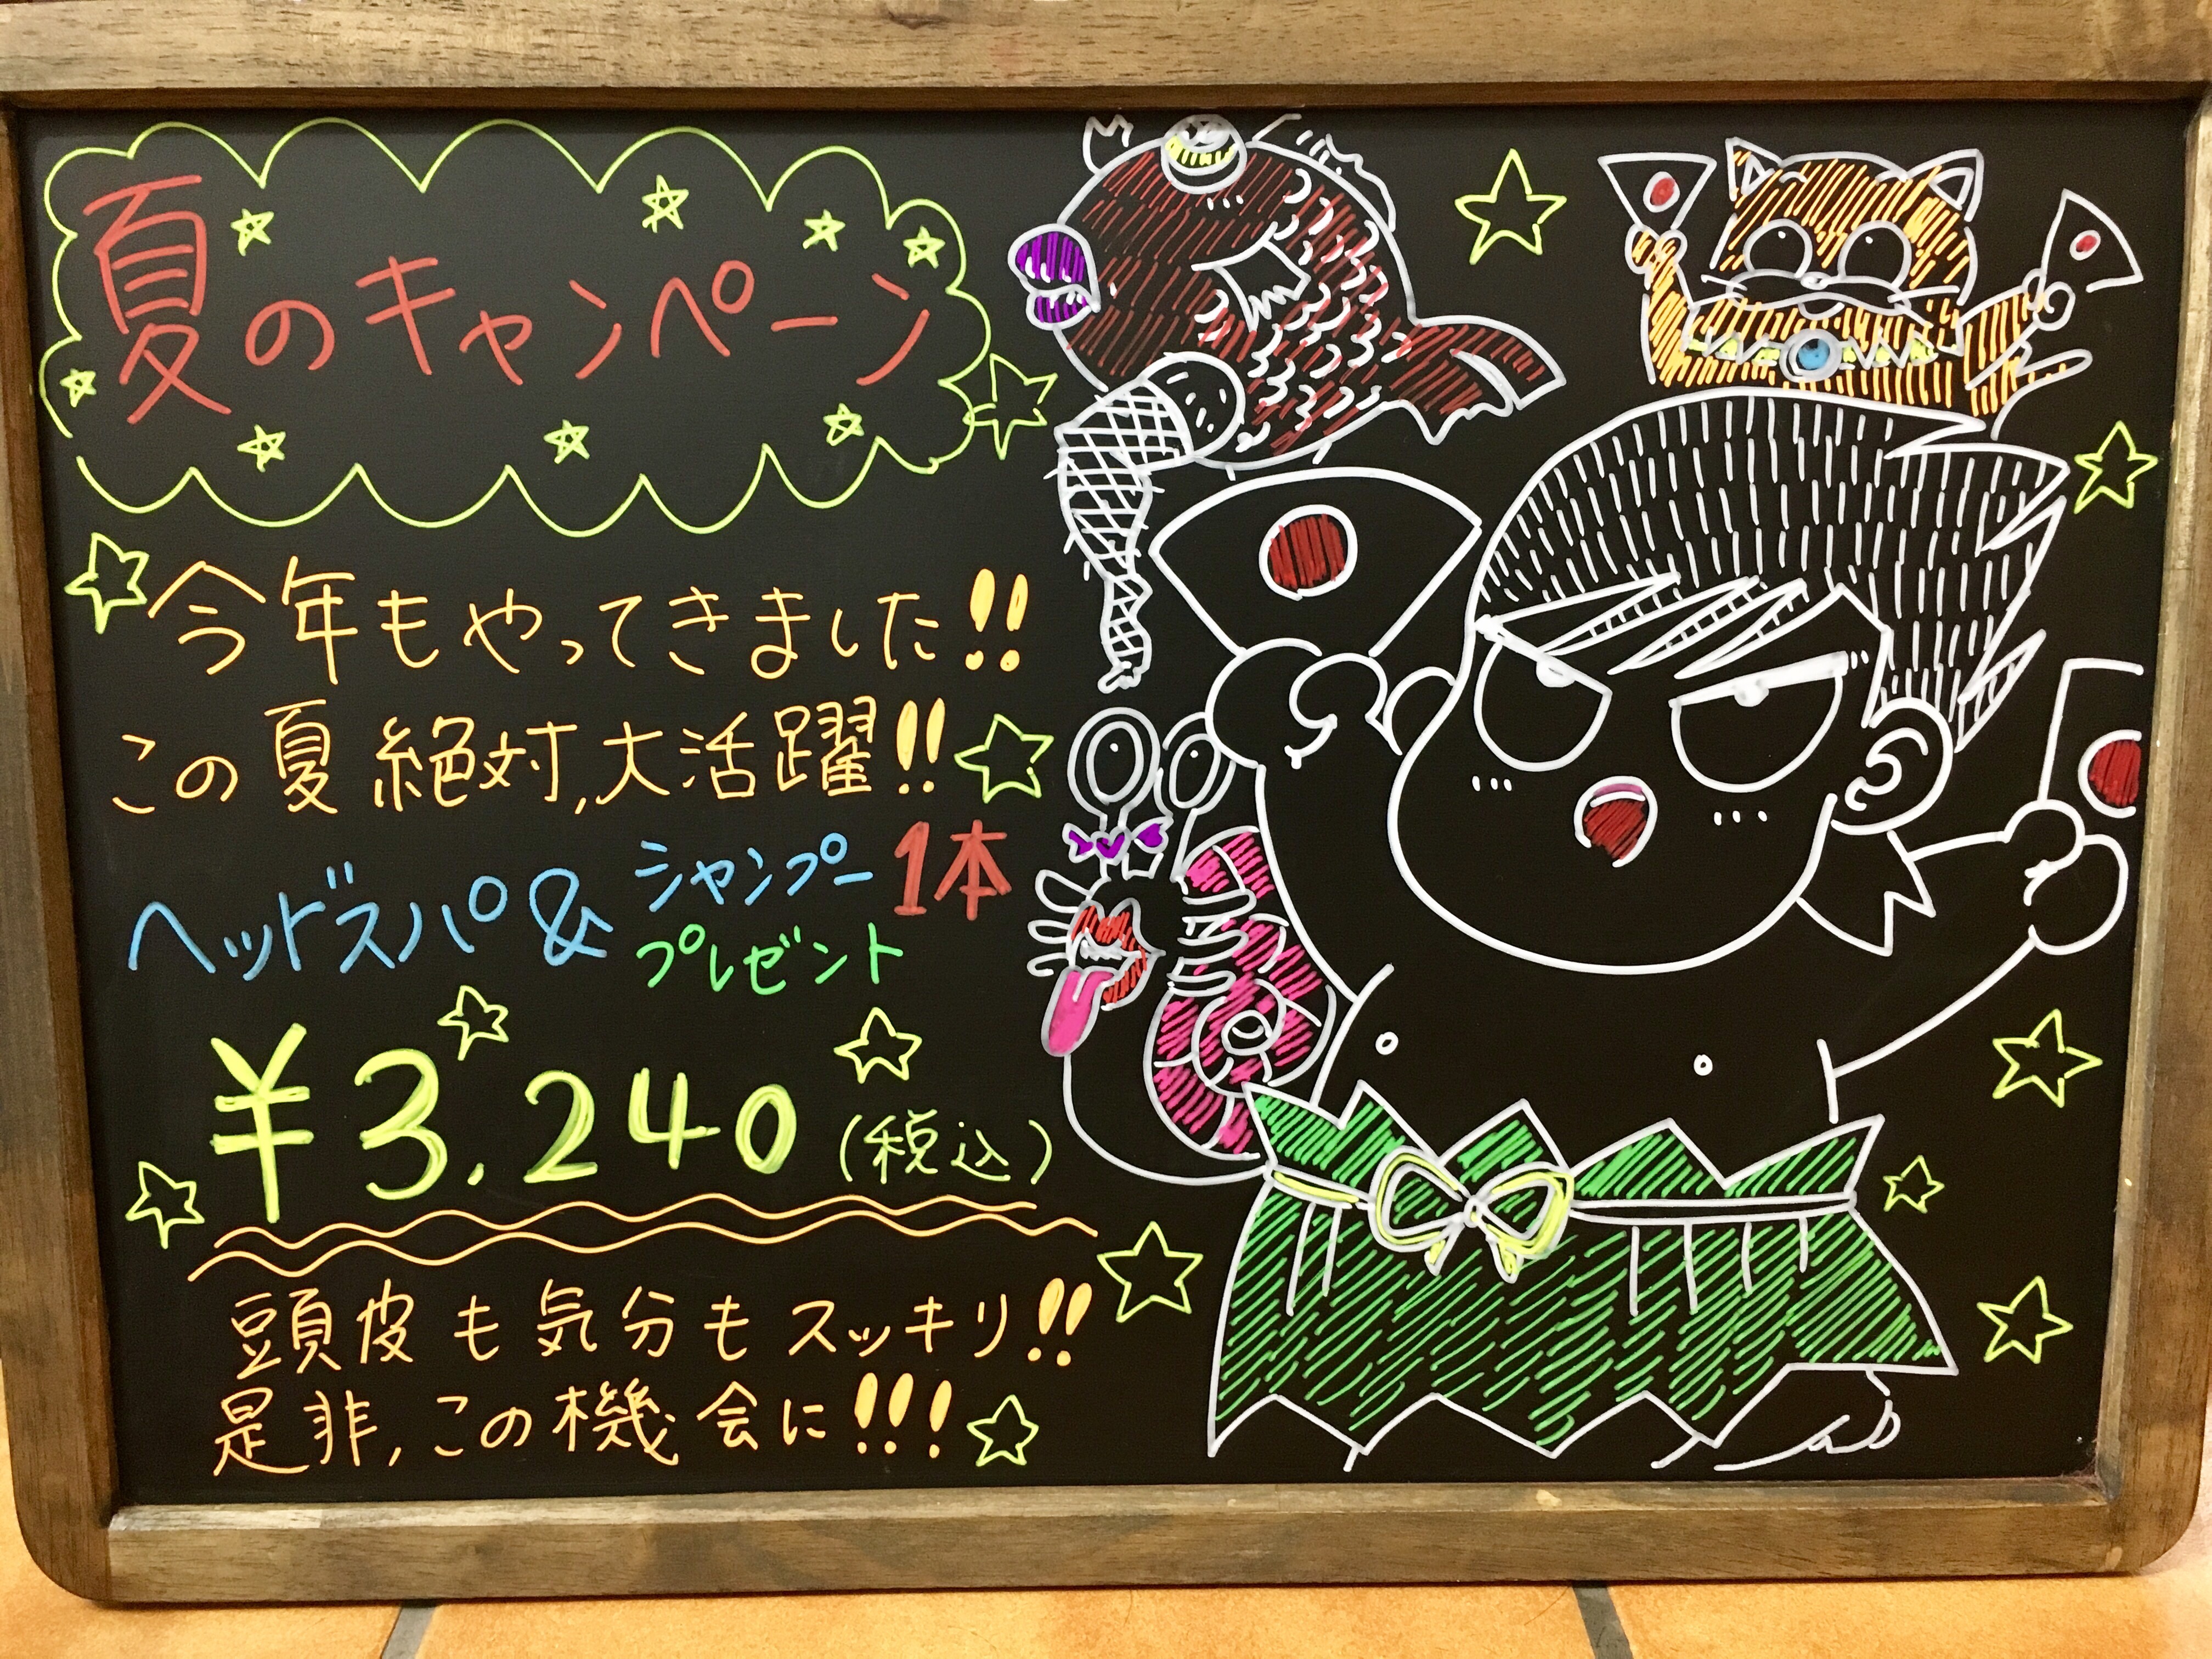 夏のキャンペーン
今年もやってきました!!
この夏絶対,大活躍!!
ヘッドスパ&シャンプー1本
プレゼント
¥3.240(税込)
頭皮も気分もスッキリ!!
是非,この機会に!!!